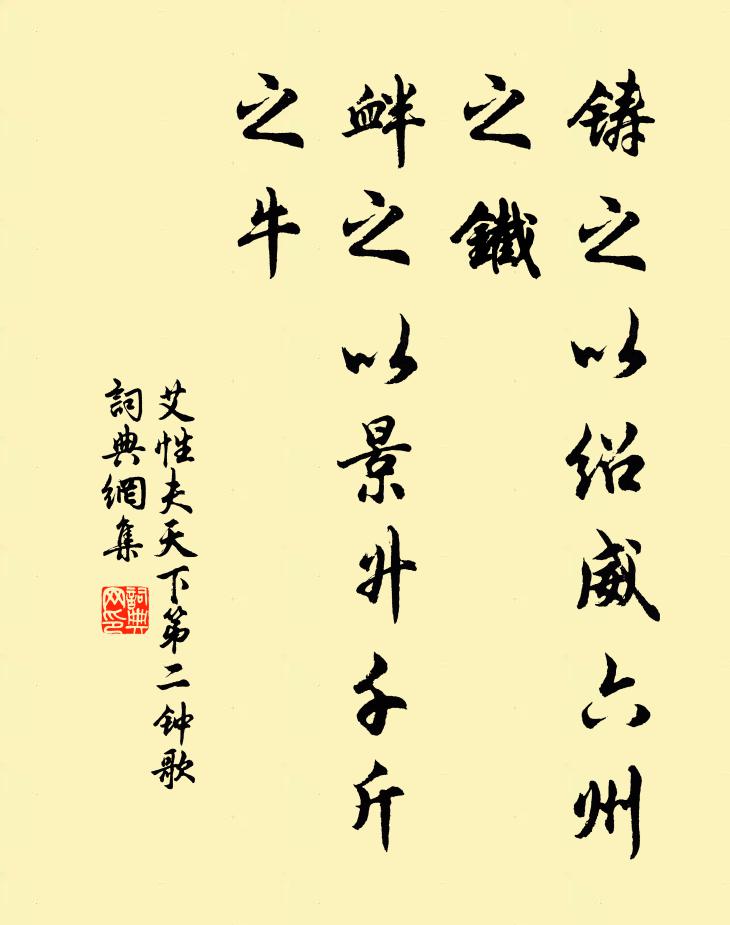 鑄之以绍威六州
之鐵
衅之以景升千斤
之牛
艾性夫天下第二钟歌
詞典網集
詞典网印